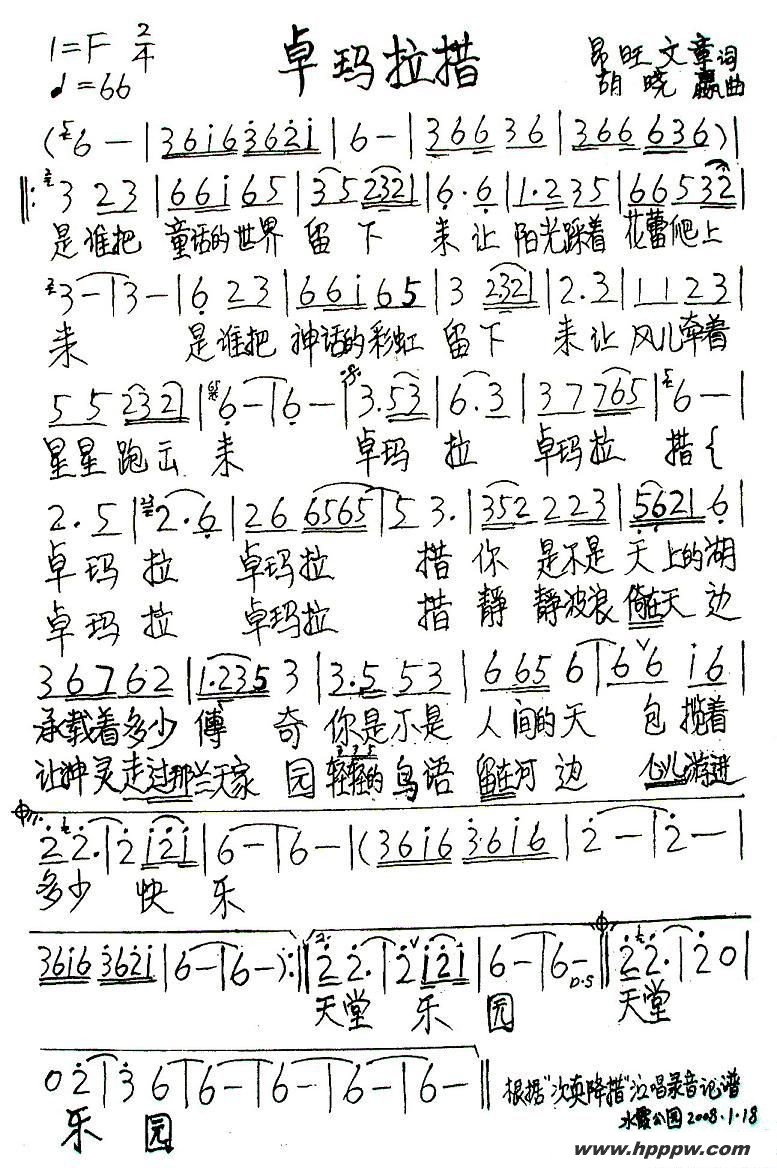 1=F 2/4
♩=66
卓玛拉措
昂旺文章词
胡晓嬴曲
(6-|3616 3621|6-|366 36|366 636)|
‖:3 23|661 65|35 2321|6·6|1·235|66532|
是谁把 童话的世界 留下 来让 阳光踩着 花蕾爬上
3-|3-|6 23|661 65|3 2321|2.3|1123|
来 是谁把 神话的彩虹 留下 来让 风儿牵着
55 232|6-|6-|3.53|6.3|377765|6-|
星星跑出 来 卓玛 拉 卓玛拉 措{
2.5|2.6|26 6565|53.|352 223|5621 6|
卓玛 拉 卓玛拉 措 你 是不是 天上的湖
卓玛 拉 卓玛拉 措 静 静波浪 倚在天 边
36762|1.235 3|3.5 53|665 6|66 i6|
承载着多少 传 奇 你是不是 人间的天 包 揽着
让神灵走过那兰天家 园 轻轻的 鸟语 留在河 边 心儿游进
22.|2 121|6-|6-|(3616 3616|2-|2-|
多少 快 乐
3616 3621|6-|6-):‖22.|2 121|6-|6-‖22.|20|
D.S
天堂 乐 园 天堂
02|3 6|6-|6-|6-|6-|6-‖
乐 园
根据"次卖降措"演唱录音记谱
水霞公园 2008.1.18
www.hpppw.com